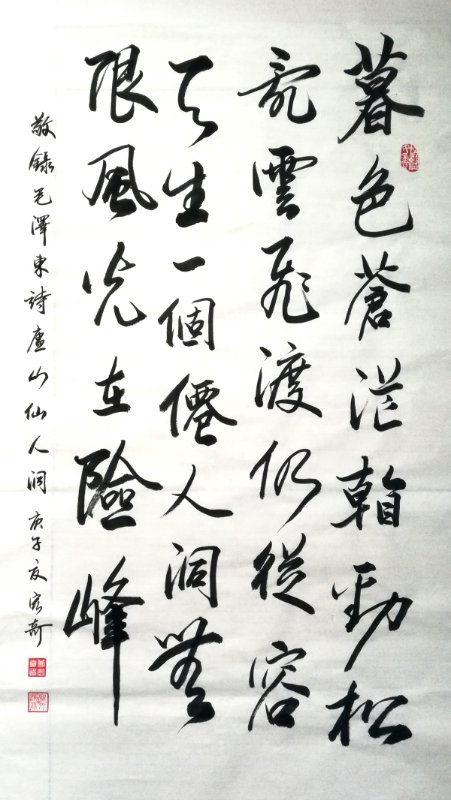 暮色蒼茫看勁松
亂雲飛渡仍從容
天生一個僊人洞無
限風光在險峰
敬錄毛澤東詩廬山仙人洞 庚子